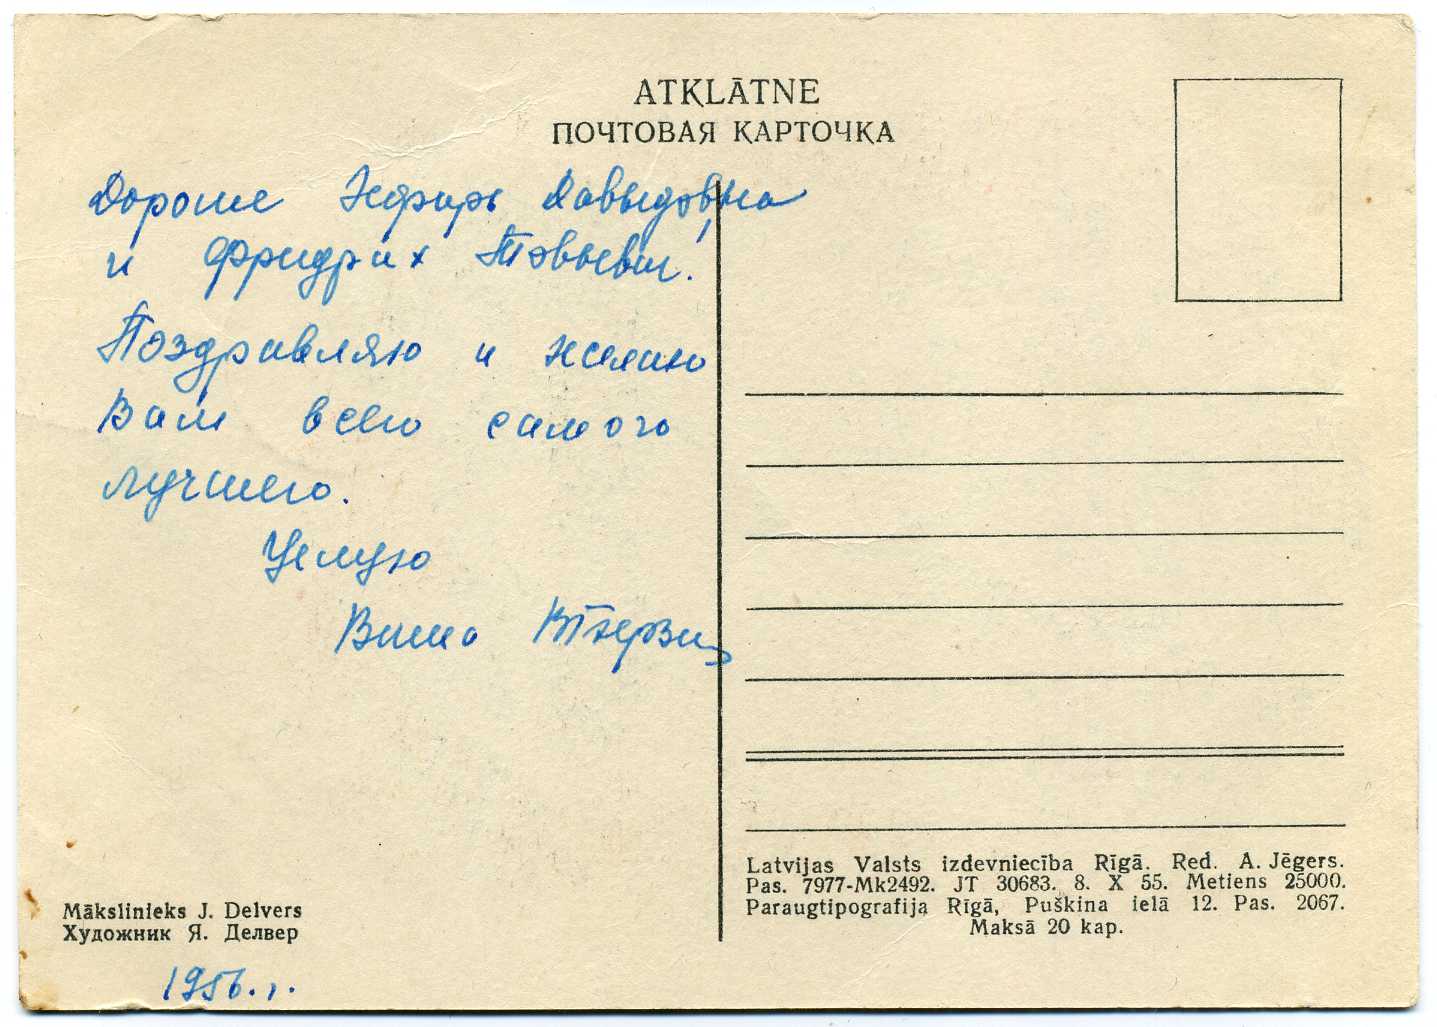 ATKLĀTNE
ПОЧТОВАЯ КАРТОЧКА
Дорогие Эсфирь Давыдовна
и Фридрих
Поздравляю и желаю
Вам всего самого
лучшего.
Целую
Ваша
Mākslinieks J. Delvers
Художник Я. Делвер
1956.г.
Latvijas Valsts izdevniecība Rīgā. Red. A. Jēgers.
Pas. 7977-Mk2492. JT 30683. 8. X 55. Metiens 25000.
Paraugtipografija Rīgā, Puškina ielā 12. Pas. 2067.
Maksā 20 kap.